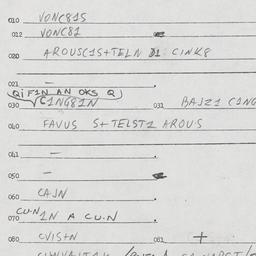 010 VONC81S
012 VONC81
020 AROUSC1S+TELN 31 CINK8
021
QiF1N AN OKS Q
030 C1NG81N 031 BAJZ1 C1NG
040 FAVUS S+TELST1 AROUS
041 —
050 —
060 CAJN
070 CU·N1N A CU·N
080 CVIS+N 081 +